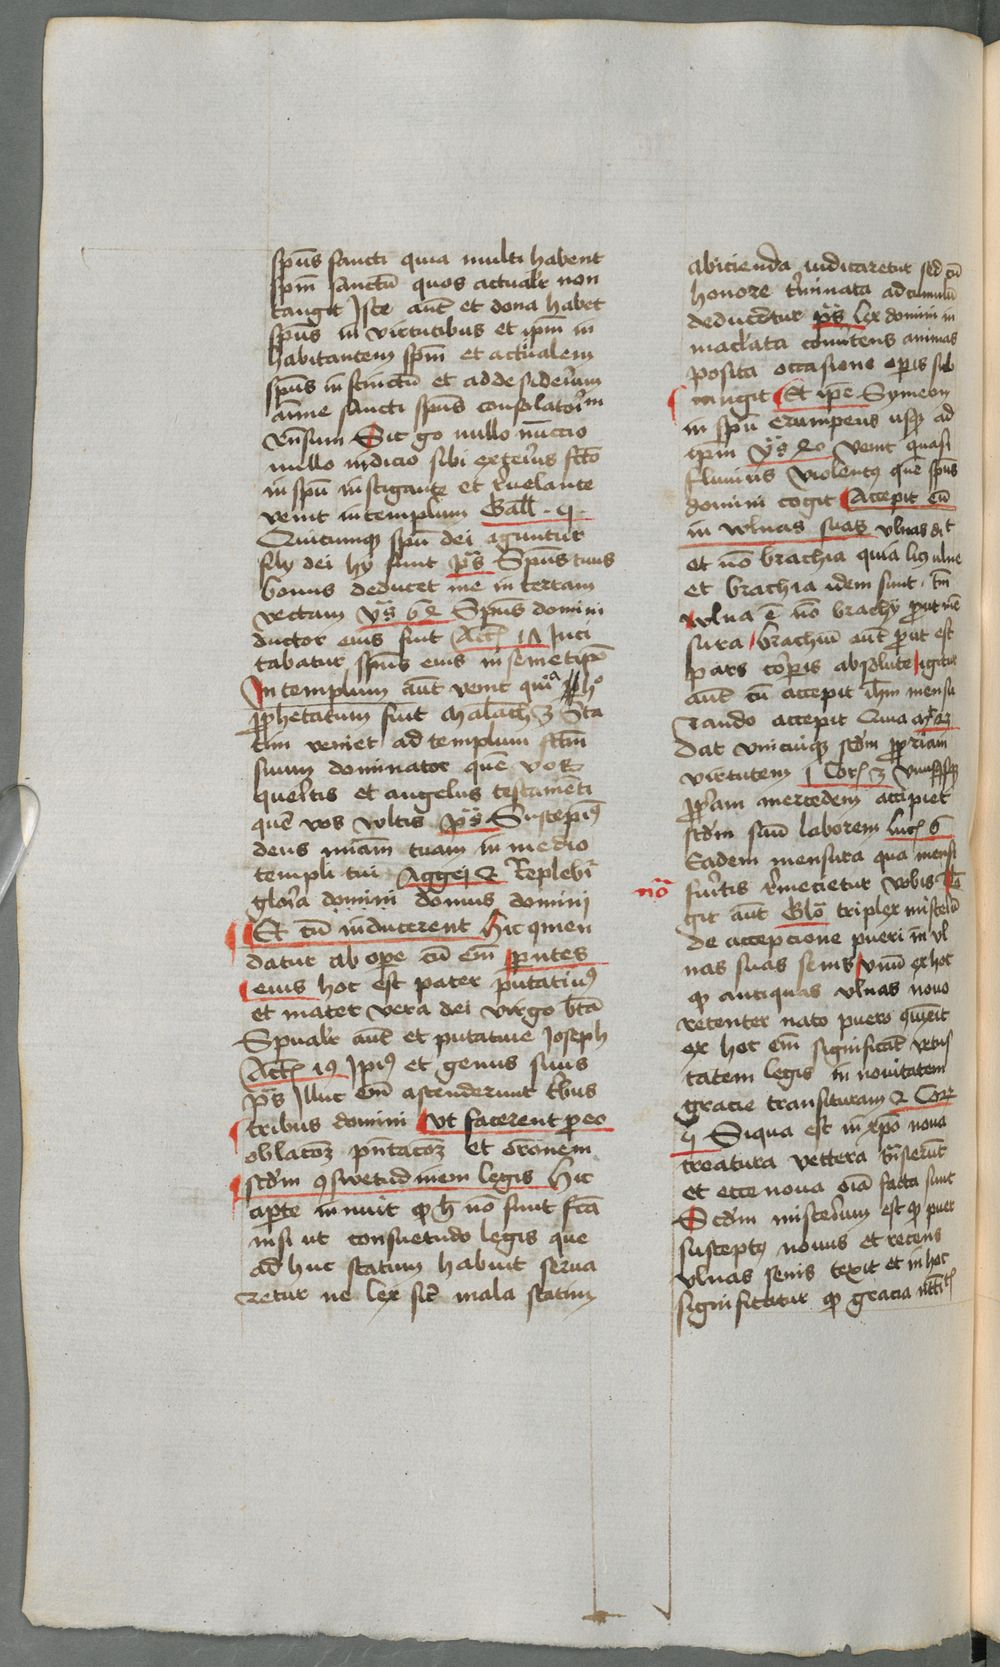 spūs sancti quia multi habent
spm̄ sanctū quos actualr̄ non
tangit Iste aut̄ et dona habet
spūs in virtutibus et ipm̄ in
habitantem spm̄ et actualem
spūs instinctū et ad desideriūm
aīme sancti spūs consolatoriūm
rn̄sum Sic go nullo nūctio
nullo indicio sibi exterius fc̄to
in spū instigante et reuelante
venit in templum Gall
Quicumqȝ spū dei aguntur
filÿ dei hÿ sunt ps̄ Spūs tuus
bonus deducet me in terram
rectam ys̄ 63 Spūs domini
ductor eius fuit Act̄ 17 Inci
tabatur spūs eius in semetipō
In templum aut̄ venit quia h°
ꝓphetatum fuit malach̄ 3 Sta
tim veniet ad templum sc̄tm̄
suum dominator quē vos
queritis et angelus testamēti
quē vos wltis ps̄ Suscepim9
deus mīam tuam in medio
templi tui Aggei 2 Replebit̄
gloria domini domus domini
Et cū inducerent Hic 9men
datur ab ope cū em̄ pn̄tes
eius hoc est pater putatiu9
et mater vera dei virgo bt̄a
Spualr̄ aut̄ et putatiue Joseph
Act̄ 19 Ipi9 et genus sum9
ps̄ Illuc em̄ ascenderunt tbus
tribus domini Vt facerent p eo
oblacōȝ pn̄tacōȝ et orōnem
scdm̄ 9swetudinem legis Hic
apte innuit ꝙ h̄ nō sunt fcā
nisi ut consuetudo legis que
ad huc statum habuit serua
retur ne lex sic̄ mala statim
abicienda iudicaretur sed cū
honore t̄minata ad cumulū
deducētur ps̄ Lex domini in
maclata conūtens animas
posita occasione opis sub
iungit Et ipē Symeon
in spū erumpens usqȝ ad
ipm̄ venit quasi
fluuius violent9 quē spūs
domini cogit Accepit eū
in wlnas suas vlnas dīt
et nō brachia quia lic3 ulne
et brachia idem sunt tm̄
wlna ē nō brachÿ put mē
sura brachiū aut̄ put est
pars corpis absolute igitur
aut̄ cū accepit ihm̄ mensu
rando accepit Quia
Dat vnicuiqȝ scdm̄ ꝓpriam
virtutem 1 Cor̄ 3 vnusqsqȝ
ꝓpām mercedem accipiet
scdm̄ suū laborem Luc̄ 6
Eadem mensura qua mensi
nō
fueritis remecietur vobis
git aut̄ Glō triplex misteriū
de accepcione pueri in vl
nas suas senis vnū ex hoc
ꝙ antiquas vlnas nouo
recenter nato puero
ex hoc em̄ significat̄ vetus
tatem legis in nouitatem
gracie transituram 2 Cor̄
Siqua est in xpō noua
creatura vettera tn̄sierūt
et ecce noua oīa facta sunt
Scdm̄ misterium est ꝙ puer
suscept9 nouus et recens
vlnas senis texit et in hoc
significatur ꝙ gracia